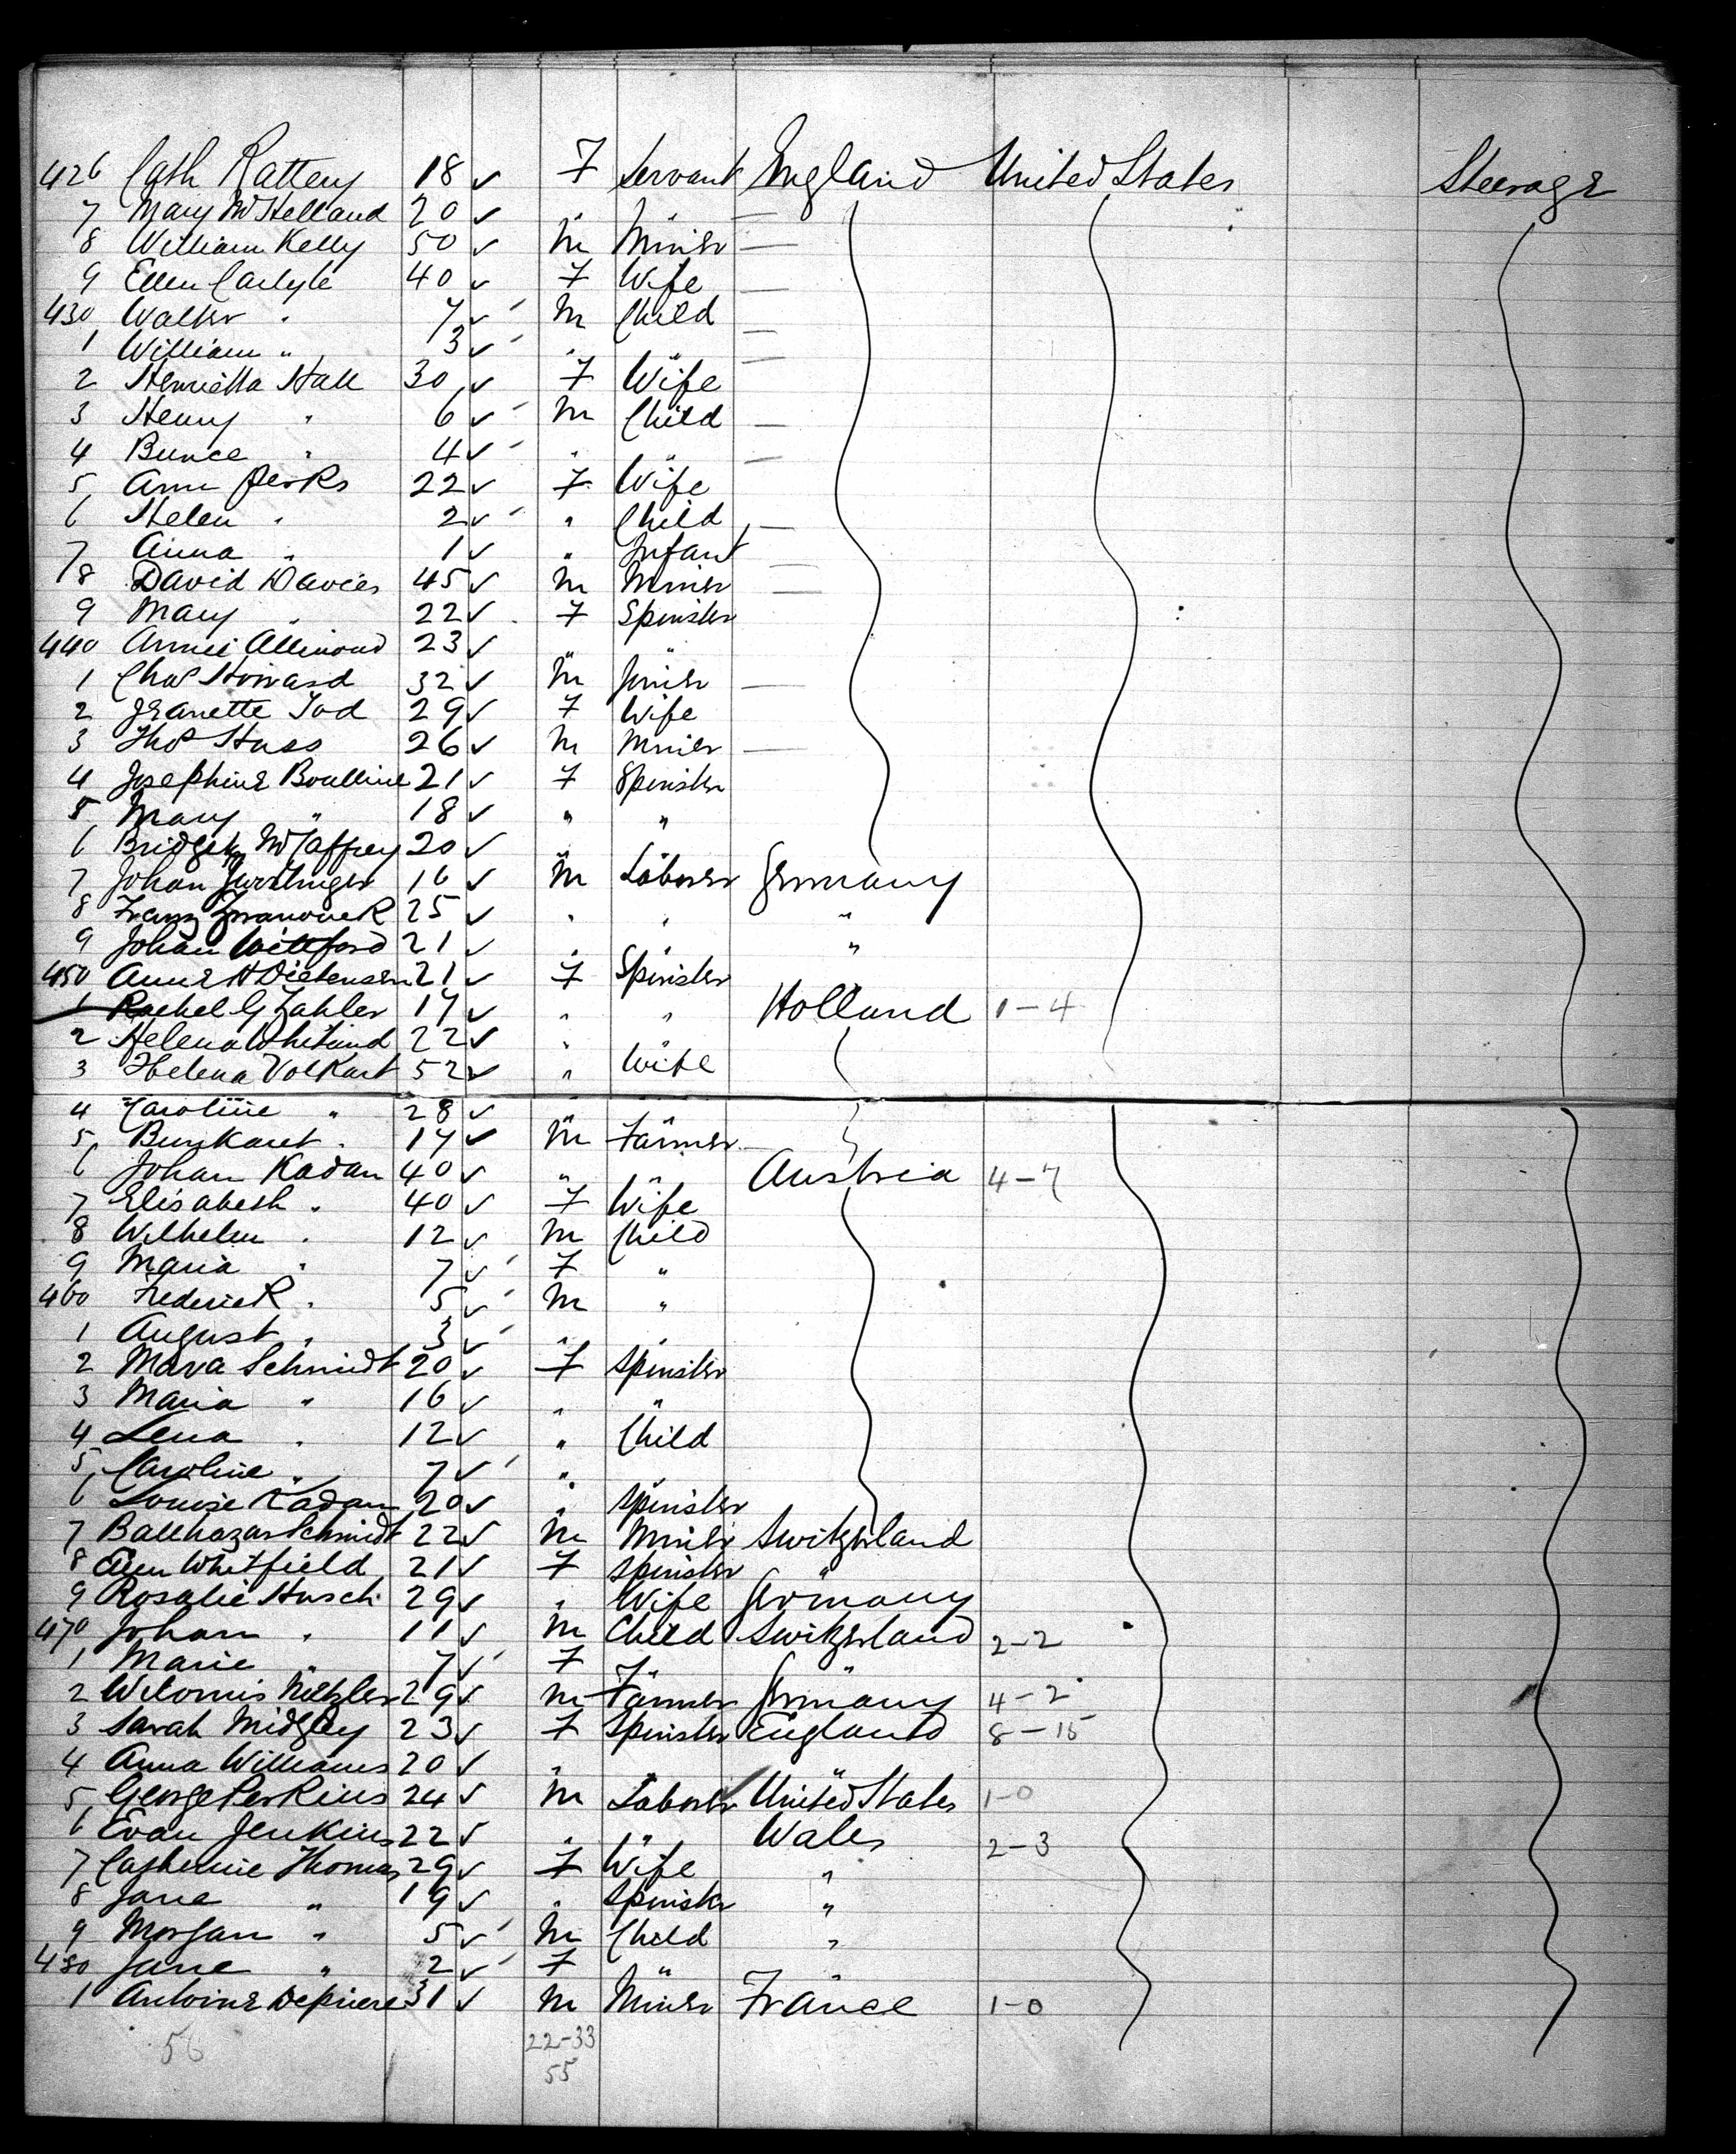 426 Cath Rattery 18 ✓ F Servant England United States Steerage
7 Mary McHelland 20 ✓ " "
8 William Kelly 50 ✓ M Miner —
9 Ellen Carlyle 40 ✓ F Wife —
430 Walter " 7 ✓ M Child
1 William " 3 ✓ " " —
2 Henrietta Hall 30 ✓ F Wife
3 Henry " 6 ✓ M Child —
4 Bunce " 4 ✓ " " —
5 Ann Perks 22 ✓ F Wife
6 Helen " 2 ✓ " Child —
7 Anna " 1 ✓ " Infant
8 David Davies 45 ✓ M Miner —
9 Mary " 22 ✓ F Spinster
440 Annie 23 ✓ " "
1 Chas Howard 32 ✓ M Joiner —
2 Jeanette Tod 29 ✓ F Wife
3 Thos Huss 26 ✓ M Miner —
4 Josephine Boulline 21 ✓ F Spinster
5 Mary " 18 ✓ " "
6 Bridget McCaffrey 20 ✓ " "
7 Johan 16 ✓ M Laborer Germany
8 Franz 25 ✓ " " "
9 Johan Wittford 21 ✓ " " "
450 Anne H Dietensen 21 ✓ F Spinster
1 Rachel G Zahler 17 ✓ " " Holland 1-4
2 Helena 22 ✓ "
3 Helena Volkart 52 ✓ " Wife
4 Caroline " 28 ✓ " "
5 Burkaret " 17 ✓ M Farmer
6 Johan Kadan 40 ✓ " " Austria 4-7
7 Elisabeth " 40 ✓ F Wife
8 Wilhelm " 12 ✓ M Child
9 Maria " 7 ✓ F "
460 Frederick " 5 ✓ M "
1 August " 3 ✓ " "
2 Mara Schmidt 20 ✓ F Spinster
3 Maria " 16 ✓ " "
4 Lena " 12 ✓ " Child
5 Caroline " 7 ✓ " "
6 Louise Kadan 20 ✓ " Spinster
7 Balthazar Schmidt 22 ✓ M Miner Switzerland
8 Ellen Whitfield 21 ✓ F Spinster "
9 Rosalie Husch 29 ✓ " Wife Germany
470 Johan " 11 ✓ M Child Switzerland 2-2
1 Marie " 7 ✓ F " "
2 29 ✓ M Farmer Germany 4-2
3 Sarah Midgley 23 ✓ F Spinster England 8-15
4 Anna Williams 20 ✓ " " "
5 George Perkins 24 ✓ M Laborer United States 1-0
6 Evan Jenkins 22 ✓ " " Wales 2-3
7 Catherine Thomas 29 ✓ F Wife "
8 Jane " 19 ✓ " Spinster "
9 Morgan " 5 ✓ M Child "
480 Jane " 2 ✓ F " "
1 Antoine Depierre 31 ✓ M Miner France 1-0
56 22-33
55